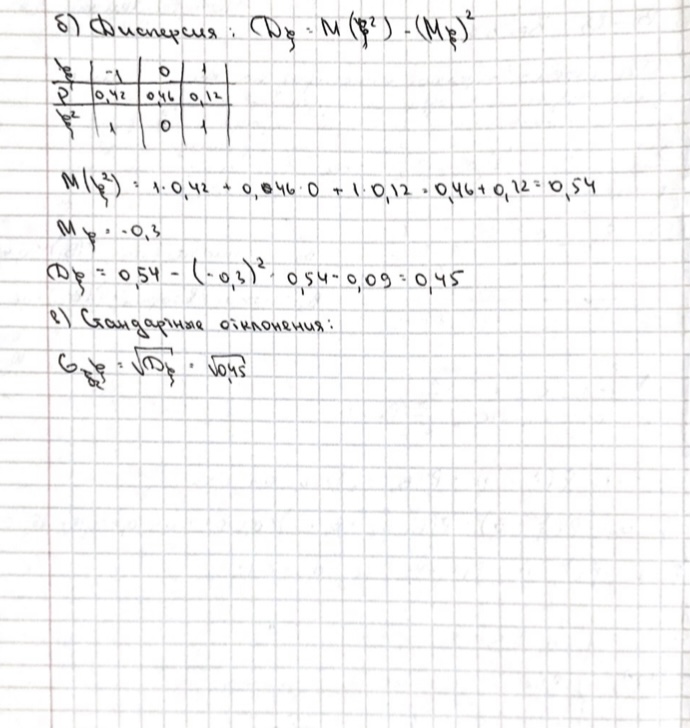 б) Дисперсия: Dξ = M(ξ²) - (Mξ)²
ξ | -1 | 0 | 1
P | 0,42 | 0,46 | 0,12
ξ² | 1 | 0 | 1
M(ξ²) = 1·0,42 + 0,046·0 + 1·0,12 = 0,46 + 0,12 = 0,54
Mξ = -0,3
Dξ = 0,54 - (-0,3)² = 0,54 - 0,09 = 0,45
в) Стандартные отклонения:
Gξ = √Dξ = √0,45